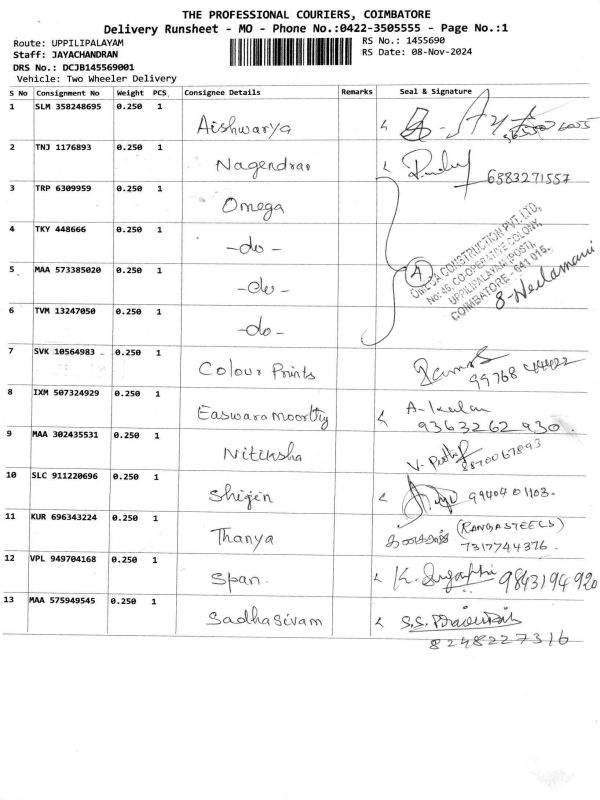 THE PROFESSIONAL COURIERS, COIMBATORE
Delivery Runsheet - MO - Phone No.:0422-3505555 - Page No.:1
Route: UPPILIPALAYAM
RS No.: 1455690
Staff: JAYACHANDRAN
RS Date: 08-Nov-2024
DRS No.: DCJB145569001
Vehicle: Two Wheeler Delivery
S No Consignment No Weight PCS, Consignee Details Remarks Seal & Signature
1 SLM 358248695 0.250 1
Aishwarya
2 TNJ 1176893 0.250 1
Nagendran
6883271557
3 TRP 6309959 0.250 1
Omega
4 TKY 448666 0.250 1
-do-
5 MAA 573385020 0.250 1
-do-
4
OMEGA CONSTRUCTION PVT. LTD,
No: 46, CO-OPERATIVE COLONY,
UPPILIPALAYAM (POST),
COIMBATORE - 641 015.
8-Neelamani
6 TVM 13247050 0.250 1
-do-
7 SVK 10564983 0.250 1
Colour Prints
99768 44422
8 IXM 507324929 0.250 1
Easwaramoorthy
A-
9363262 930.
9 MAA 302435531 0.250 1
Nitiksha
8870067893
10 SLC 911220696 0.250 1
Shijin
99404 01103.
11 KUR 696343224 0.250 1
Thanya
(RANGASTEELS)
7317744376.
12 VPL 949704168 0.250 1
Span.
9843194920
13 MAA 575949545 0.250 1
Sadhasivam
S.S.
8248227316